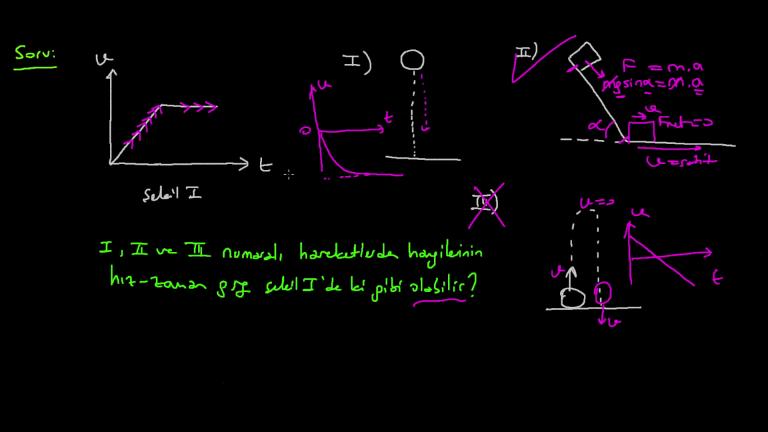 Soru:
v
t
Şekil I
I)
v
0
t
II)
F = m.a
mgsinα = m.a
α
v
Fnet=0
v=sabit
III)
v=0
v
v
v
t
I, II ve III numaralı hareketlerden hangilerinin
hız-zaman grf şekil I'de ki gibi olabilir?